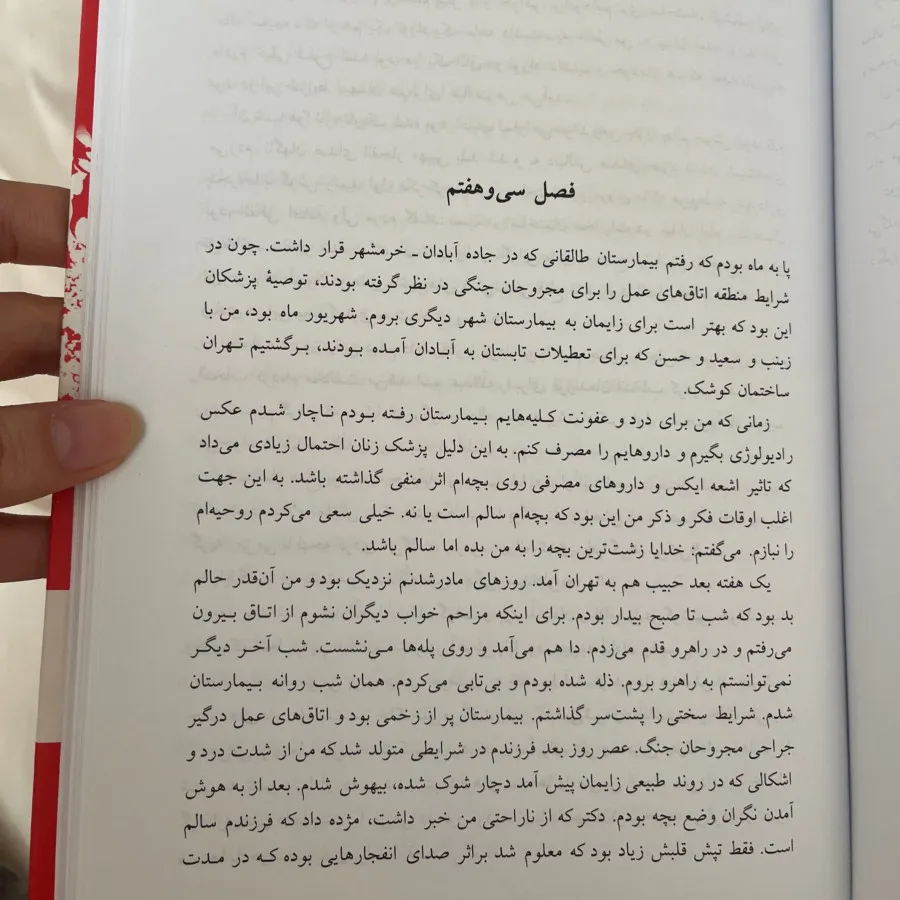 فصل سی‌وهفتم
پا به ماه بودم که رفتم بیمارستان طالقانی که در جاده آبادان ـ خرمشهر قرار داشت. چون در
شرایط منطقه اتاق‌های عمل را برای مجروحان جنگی در نظر گرفته بودند، توصیهٔ پزشکان
این بود که بهتر است برای زایمان به بیمارستان شهر دیگری بروم. شهریور ماه بود، من با
زینب و سعید و حسن که برای تعطیلات تابستان به آبادان آمده بودند، برگشتیم تهران
ساختمان کوشک.
زمانی که من برای درد و عفونت کلیه‌هایم بیمارستان رفته بودم ناچار شدم عکس
رادیولوژی بگیرم و داروهایم را مصرف کنم. به این دلیل پزشک زنان احتمال زیادی می‌داد
که تاثیر اشعه ایکس و داروهای مصرفی روی بچه‌ام اثر منفی گذاشته باشد. به این جهت
اغلب اوقات فکر و ذکر من این بود که بچه‌ام سالم است یا نه. خیلی سعی می‌کردم روحیه‌ام
را نبازم. می‌گفتم: خدایا زشت‌ترین بچه را به من بده اما سالم باشد.
یک هفته بعد حبیب هم به تهران آمد. روزهای مادرشدنم نزدیک بود و من آن‌قدر حالم
بد بود که شب تا صبح بیدار بودم. برای اینکه مزاحم خواب دیگران نشوم از اتاق بیرون
می‌رفتم و در راهرو قدم می‌زدم. دا هم می‌آمد و روی پله‌ها می‌نشست. شب آخر دیگر
نمی‌توانستم به راهرو بروم. ذله شده بودم و بی‌تابی می‌کردم. همان شب روانه بیمارستان
شدم. شرایط سختی را پشت‌سر گذاشتم. بیمارستان پر از زخمی بود و اتاق‌های عمل درگیر
جراحی مجروحان جنگ. عصر روز بعد فرزندم در شرایطی متولد شد که من از شدت درد و
اشکالی که در روند طبیعی زایمان پیش آمد دچار شوک شده، بیهوش شدم. بعد از به هوش
آمدن نگران وضع بچه بودم. دکتر که از ناراحتی من خبر داشت، مژده داد که فرزندم سالم
است. فقط تپش قلبش زیاد بود که معلوم شد براثر صدای انفجارهایی بوده که در مدت